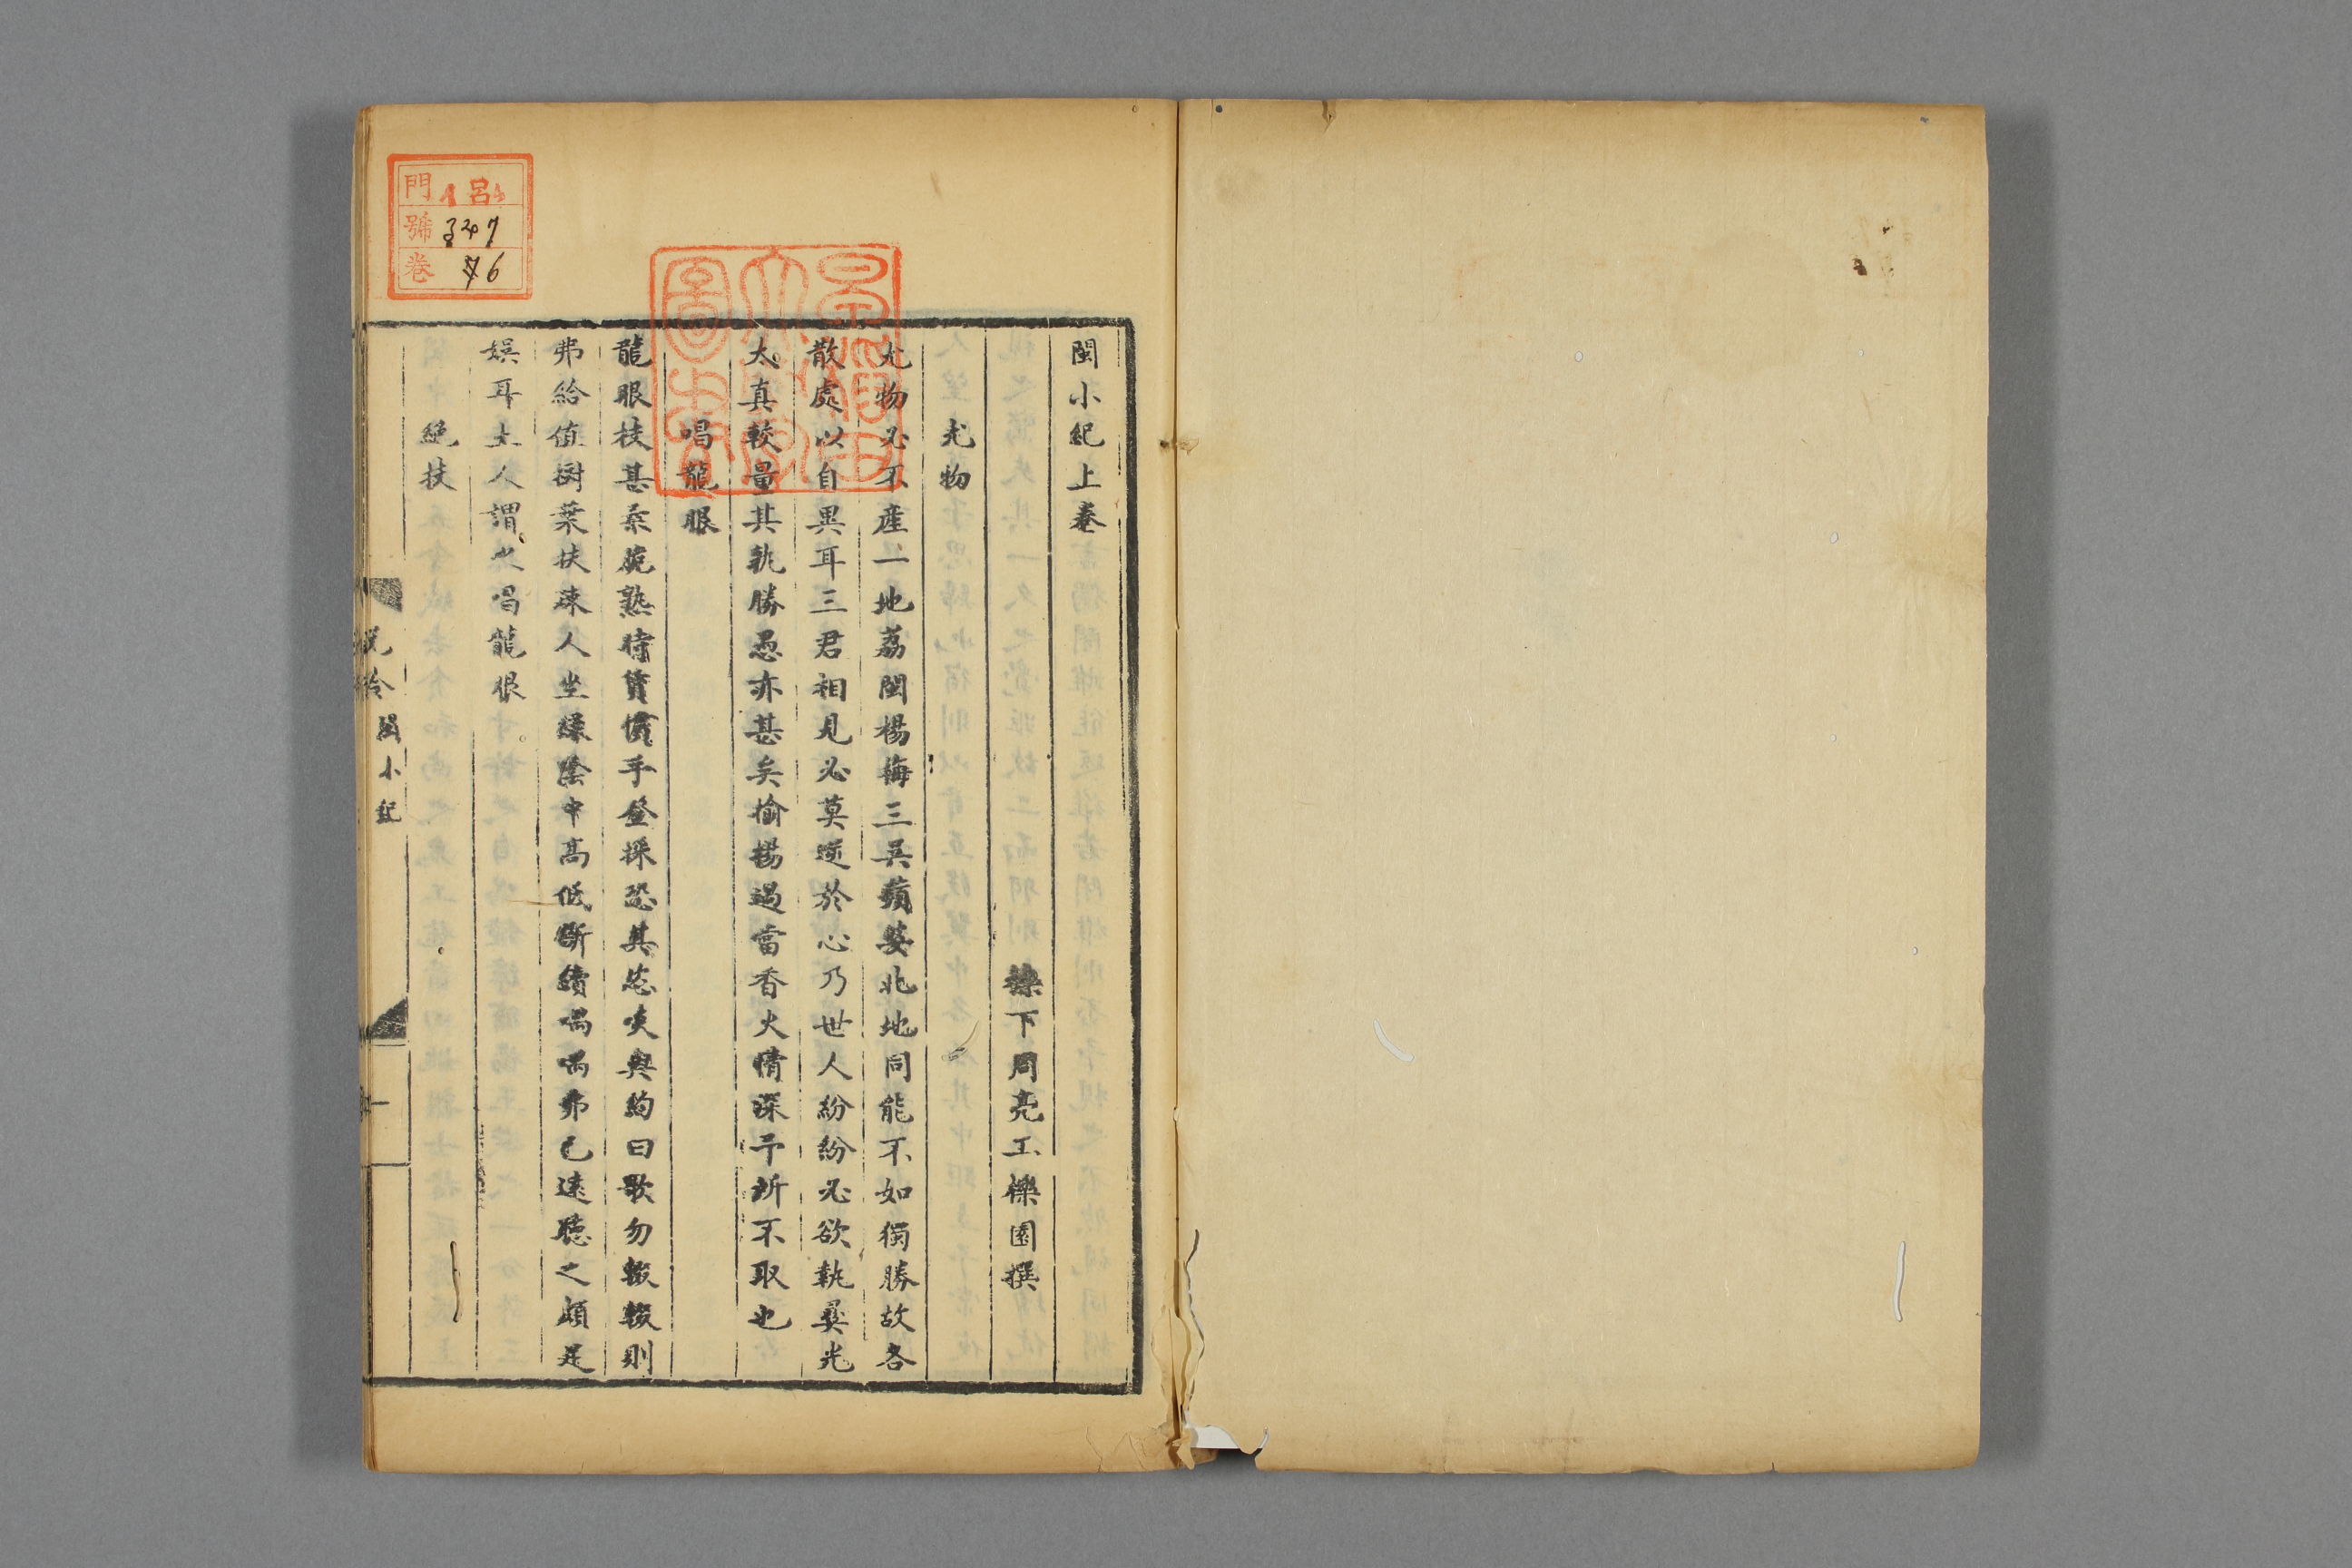 閩小紀上卷
下周亮工櫟園撰
尤物
尤物必不產一地荔閩楊梅三吳蘋婆北地同能不如獨勝故各
散處以自異耳三君相見必莫逆於心乃世人紛紛必欲執奚光
太真較量其孰勝愚亦甚矣揄揚過當香火情深予所不取也
唱龍眼
龍眼枝甚柔脆熟時賃慣手登採恐其恣啖與約曰歌勿輟輟則
弗給值樹葉扶疎人坐綠陰中高低斷續喁喁弗已遠聽之頗足
娛耳土人謂之唱龍眼
絶技
說鈴 閩小紀
一
門 呂
號 347
卷 6
早稻田大學圖書